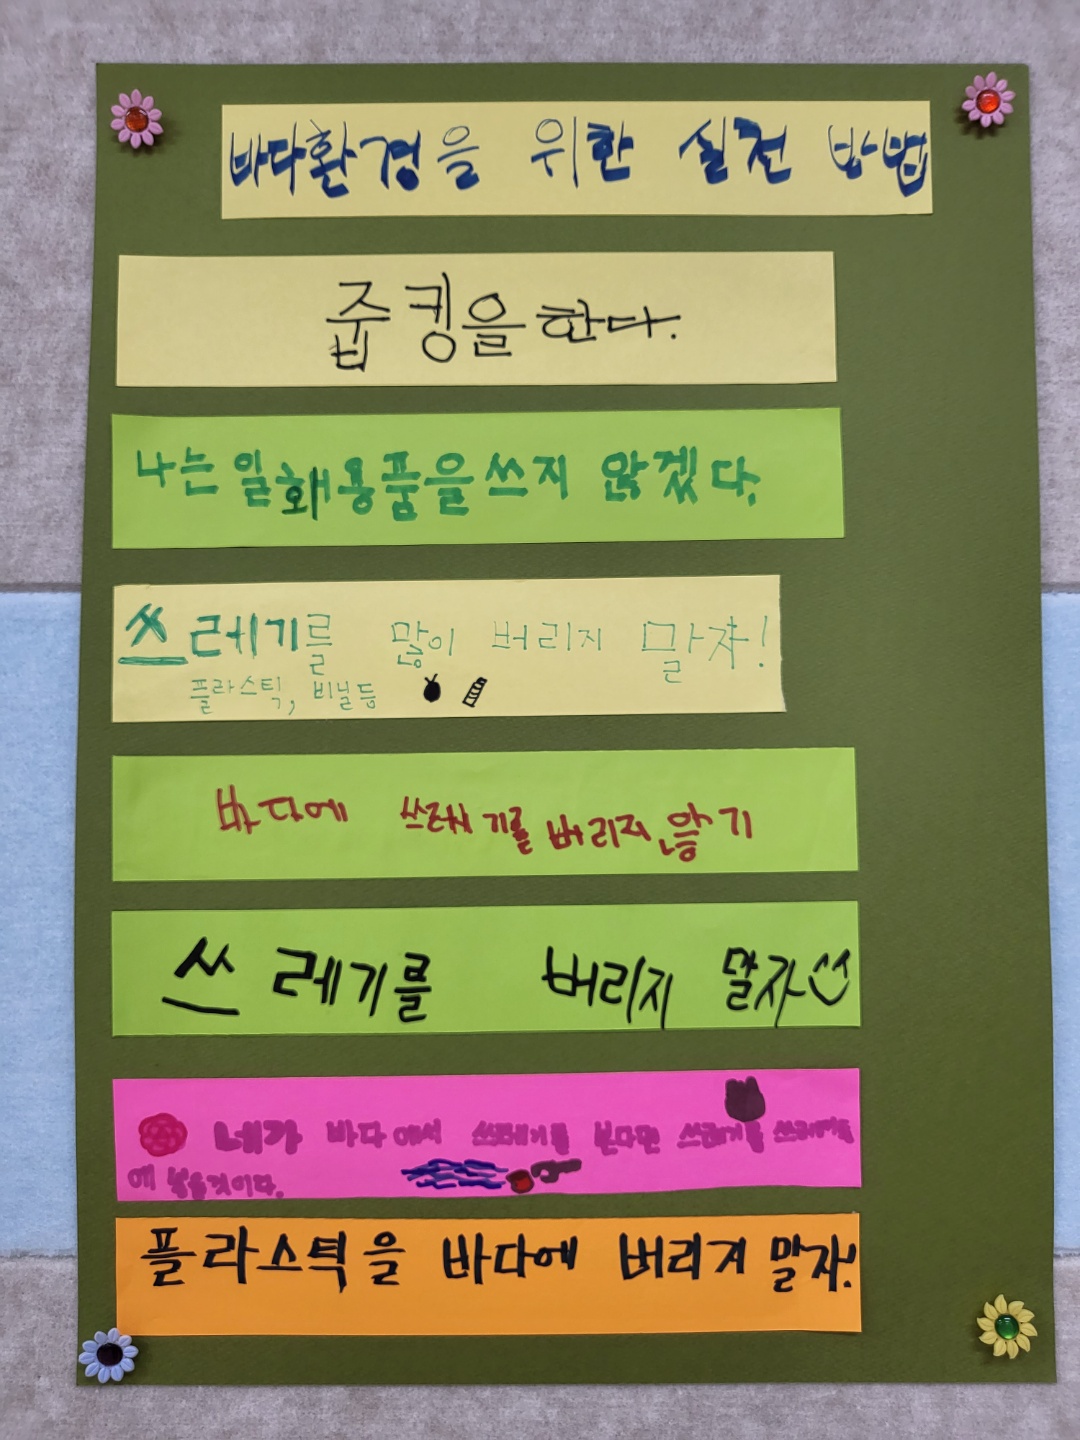 바다환경을 위한 실천 방법
줍킹을한다.
나는 일홰용품을쓰지 않겠다.
쓰레기를 많이 버리지 말자!
플라스틱, 비닐등
바다에 쓰레기를버리지않기
쓰레기를 버리지 말자
네가 바다에서 쓰레기를 본다면 쓰레기를
에 넣을것이다.
플라스틱을 바다에 버리지 말자!